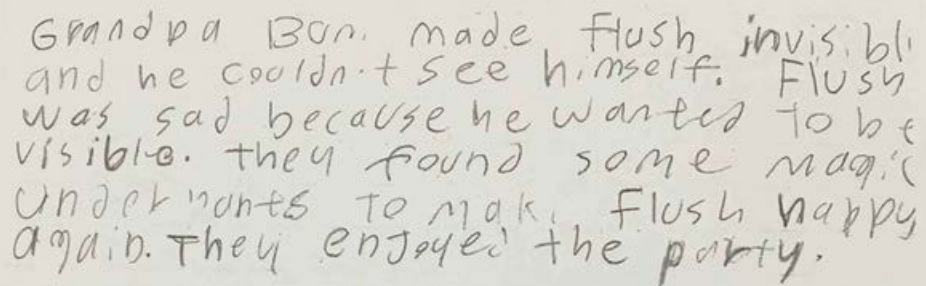 Grandpa Bon. made flush invisibl
and he couldn't see himself. Flush
was sad because he wanted to be
visible. they found some magic
Undernants to mak. flush happy
again. They enjoyed the party.